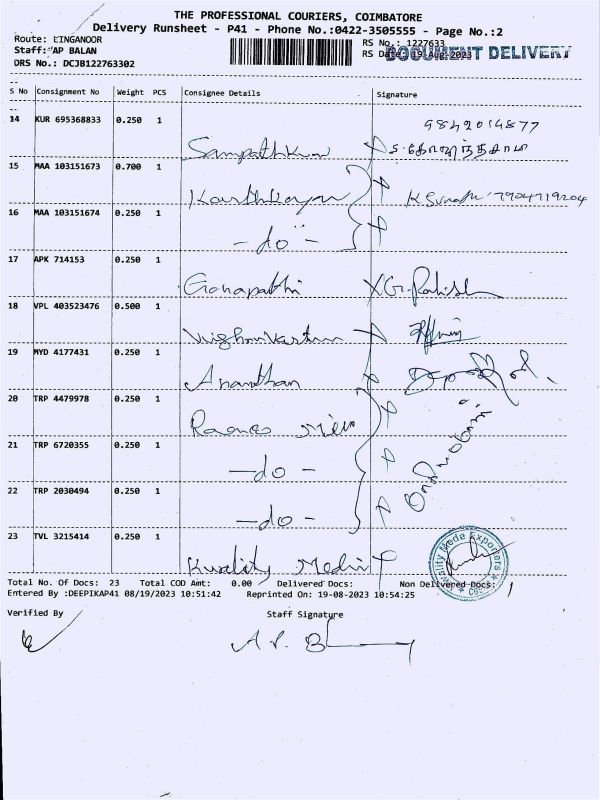 THE PROFESSIONAL COURIERS, COIMBATORE
Delivery Runsheet - P41 - Phone No.:0422-3505555 - Page No.:2
Route: LINGANOOR
RS No.: 1227633
Staff: AP BALAN
RS Date: 19-Aug-2023
DOCUMENT DELIVERY
DRS No.: DCJB122763302
S No Consignment No Weight PCS Consignee Details Signature
14 KUR 695368833 0.250 1 Sampathkumar 9842014877
15 MAA 103151673 0.700 1 Karthikeyan 7904719204
16 MAA 103151674 0.250 1 -do-
17 APK 714153 0.250 1 Ganapathi
18 VPL 403523476 0.500 1
19 MYD 4177431 0.250 1 Ananthan
20 TRP 4479978 0.250 1
21 TRP 6720355 0.250 1 -do-
22 TRP 2030494 0.250 1 -do-
23 TVL 3215414 0.250 1 Kwality
Total No. Of Docs: 23 Total COD Amt: 0.00 Delivered Docs: Non Delivered Docs:
Entered By :DEEPIKAP41 08/19/2023 10:51:42 Reprinted On: 19-08-2023 10:54:25
Verified By Staff Signature